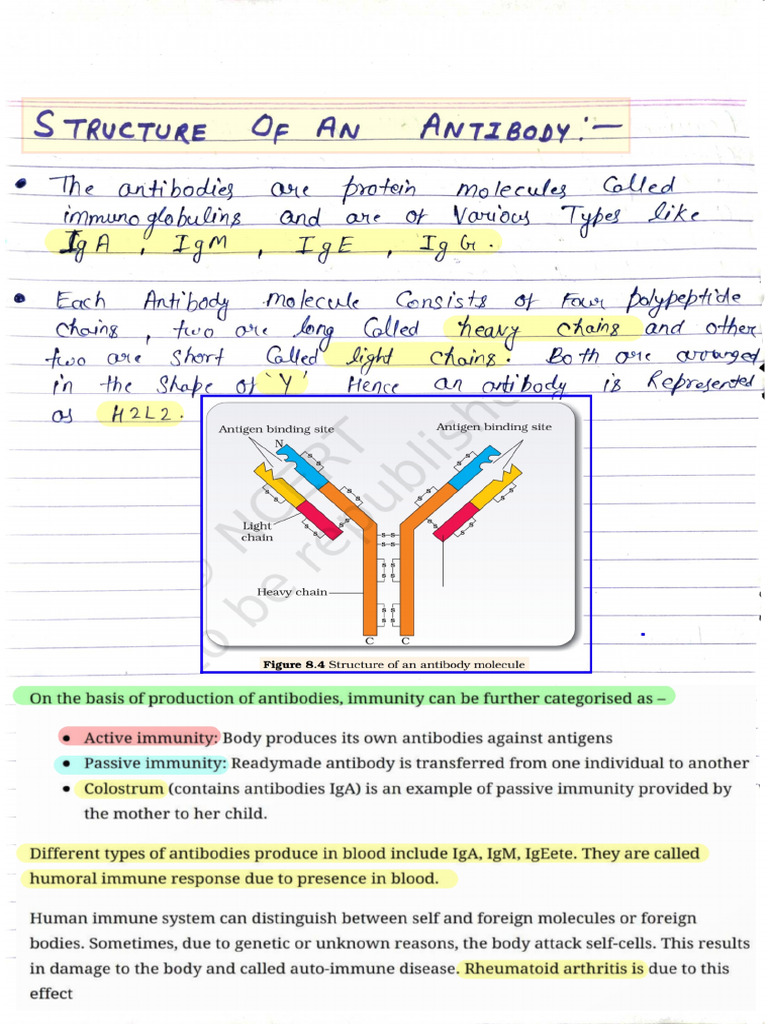 STRUCTURE OF AN ANTIBODY:-
• The antibodies are protein molecules called
immunoglobulins and are of various Types like
IgA, IgM, IgE, IgG.
• Each Antibody molecule consists of four polypeptide
chains, two are long called heavy chains and other
two are short called light chains. Both are arranged
in the shape of 'Y' Hence an antibody is Represented
as H2L2.
Antigen binding site
Antigen binding site
N
s s
s s
s s
s s
s s
s s
s s
s s
Light
chain
s s
s s
s s
s s
s s
s s
Heavy chain
s s
s s
C C
Figure 8.4 Structure of an antibody molecule
NCERT
to be republished
On the basis of production of antibodies, immunity can be further categorised as –
• Active immunity: Body produces its own antibodies against antigens
• Passive immunity: Readymade antibody is transferred from one individual to another
• Colostrum (contains antibodies IgA) is an example of passive immunity provided by
the mother to her child.
Different types of antibodies produce in blood include IgA, IgM, IgEete. They are called
humoral immune response due to presence in blood.
Human immune system can distinguish between self and foreign molecules or foreign
bodies. Sometimes, due to genetic or unknown reasons, the body attack self-cells. This results
in damage to the body and called auto-immune disease. Rheumatoid arthritis is due to this
effect